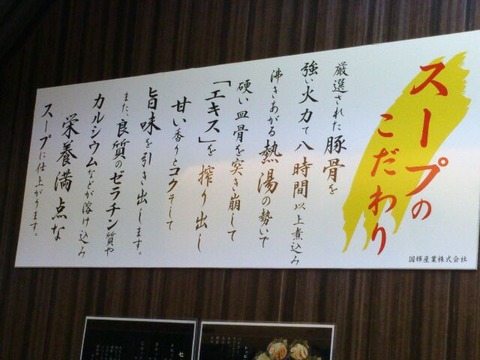 スープの
こだわり
厳選された豚骨を
強い火力で八時間以上煮込み
沸きあがる熱湯の勢いで
硬い皿骨を突き崩して
「エキス」を搾り出し
甘い香りとコクそして
旨味を引き出します。
また、良質のゼラチン質や
カルシウムなどが溶け込み
栄養満点な
スープに仕上がります。
国輝産業株式会社